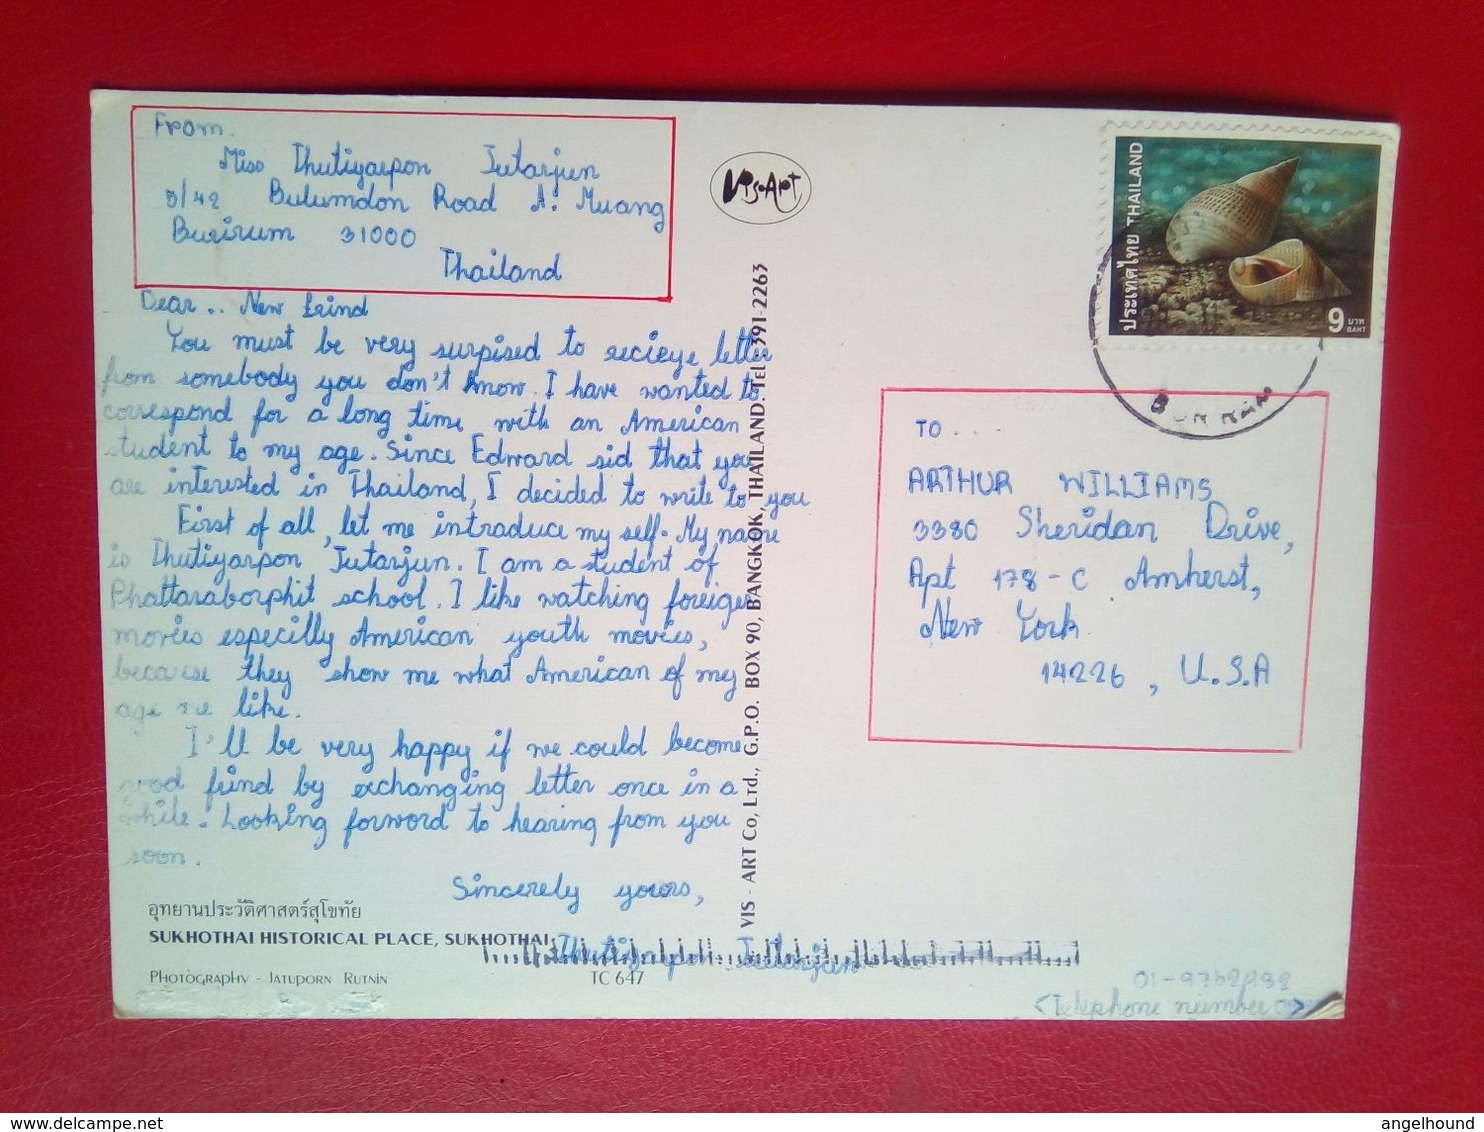 From.
Miss Thutiyarpon Jutarjun
3/42 Bulumdon Road A. Muang
Burirum 31000
Thailand
Vis-Art
ประเทศไทย THAILAND
9 บาท
BAHT
Dear .. New frind
You must be very surpised to recieye letter
from somebody you don't know. I have wanted to
correspond for a long time with an American
student to my age. Since Edward sid that you
are interested in Thailand, I decided to write to you
First of all, let me intraduce my self. My name
is Thutiyarpon Jutarjun. I am a student of
Phattaraborphit school. I like watching foreiger
movies especilly American youth movies,
because they show me what American of my
age are like.
I'll be very happy if we could become
good frind by exchanging letter once in a
while. Looking forword to hearing from you
soon.
Sincerely yours,
Thutiyarpon Jutarjun
อุทยานประวัติศาสตร์สุโขทัย
SUKHOTHAI HISTORICAL PLACE, SUKHOTHAI
Photography - Jatuporn Rutnin
TC 647
VIS - ART Co, Ltd., G.P.O. BOX 90, BANGKOK, THAILAND. Tel : 391-2263
TO....
ARTHUR WILLIAMS
3380 Sheridan Drive,
Apt 178-C Amherst,
New York
14226, U.S.A
01-9752932
<Telephone number
angelhound